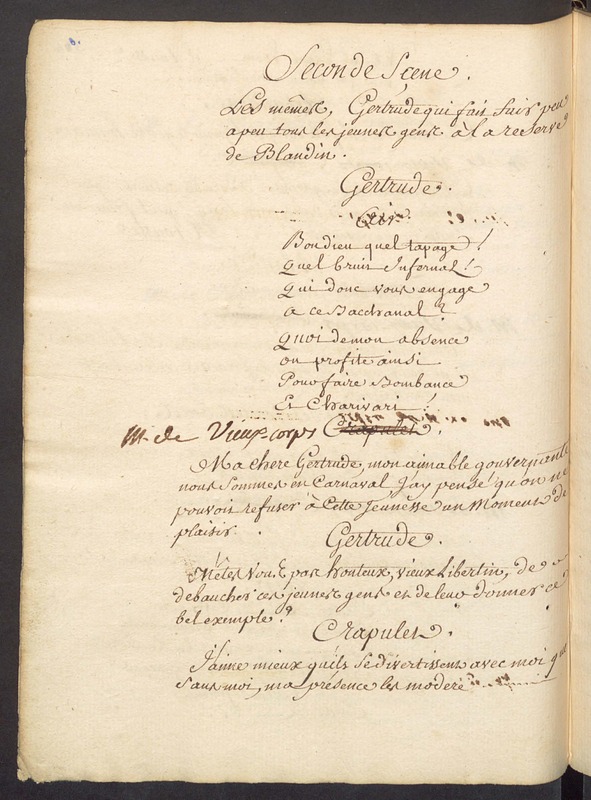 8.
Seconde Sçene.
Les mêmes, Gertrude qui fait fuir peu
a peu tous les jeunes gens à la reserve
de Blandin.
Gertrude.
Bon dieu quel tapage!
quel bruit Infernal!
qui donc vous engage
a ce Bacchanal?
quoi de mon absence
on profite ainsi
Pour faire Bombance
Et Charivari!
M. de Vieux-corps Crapulet.
Ma chere Gertrude, mon aimable gouvernante
nous sommes en Carnaval J'ay pensé qu'on ne
pouvoit refuser à Cette Jeunesse un Moment de
plaisir.
Gertrude.
N'êtes vous pas honteux, vieux Libertin, de
debaucher ces jeunes gens et de leur donner ce
bel exemple?
Crapulet.
J'aime mieux qu'ils se divertissent avec moi que
sans moi, ma présence les modere